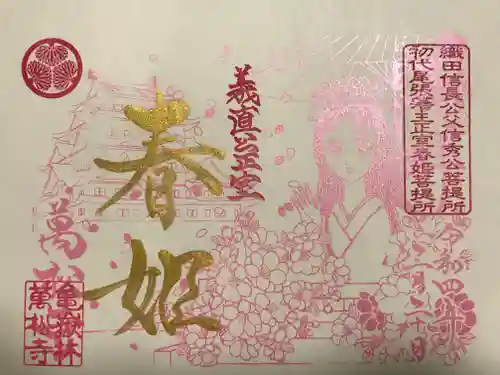 織田信長公父信秀公菩提所
初代尾張藩主正室春姫菩提所
義直公正室
春姫
令和四年
月二十日
亀嶽林
萬松寺